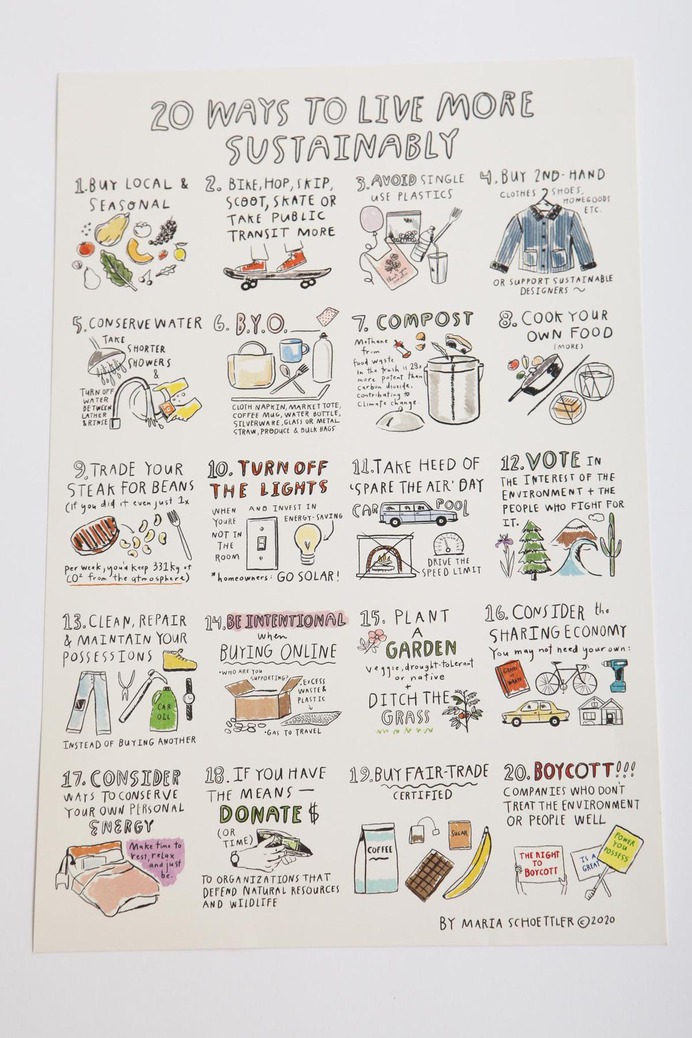 20 WAYS TO LIVE MORE
SUSTAINABLY
1. BUY LOCAL &
SEASONAL
2. BIKE, HOP, SKIP,
SCOOT, SKATE OR
TAKE PUBLIC
TRANSIT MORE
3. AVOID SINGLE
USE PLASTICS
4. BUY 2ND-HAND
CLOTHES, SHOES,
HOMEGOODS
ETC.
OR SUPPORT SUSTAINABLE
DESIGNERS ~
5. CONSERVE WATER
TAKE
SHORTER
SHOWERS
&
TURN OFF
WATER
BETWEEN
LATHER
& RINSE
6. B.Y.O.
CLOTH NAPKIN, MARKET TOTE,
COFFEE MUG, WATER BOTTLE,
SILVERWARE, GLASS OR METAL
STRAW, PRODUCE & BULK BAGS
7. COMPOST
Methane
from
food waste
in the trash is 28x
more potent than
carbon dioxide,
contributing to
climate change
8. COOK YOUR
OWN FOOD
(MORE)
9. TRADE YOUR
STEAK FOR BEANS
(if you did it even just 1x
per week, you'd keep 331 kg of
CO² from the atmosphere)
10. TURN OFF
THE LIGHTS
WHEN
YOU'RE
NOT IN
THE
ROOM
AND INVEST IN
ENERGY-SAVING
*homeowners: GO SOLAR!
11. TAKE HEED OF
'SPARE THE AIR' DAY
CAR POOL
DRIVE THE
SPEED LIMIT
12. VOTE IN
THE INTEREST OF THE
ENVIRONMENT + THE
PEOPLE WHO FIGHT FOR
IT.
13. CLEAN, REPAIR
& MAINTAIN YOUR
POSSESSIONS
CAR
OIL
INSTEAD OF BUYING ANOTHER
14. BE INTENTIONAL
when
BUYING ONLINE
*WHO ARE YOU
SUPPORTING?
*EXCESS
WASTE &
PLASTIC
*GAS TO TRAVEL
15. PLANT
A
GARDEN
veggie, drought-tolerant
or native
+
DITCH THE
GRASS
16. CONSIDER the
SHARING ECONOMY
You may not need your own:
17. CONSIDER
WAYS TO CONSERVE
YOUR OWN PERSONAL
ENERGY
Make time to
rest, relax
and just
be.
18. IF YOU HAVE
THE MEANS —
DONATE $
(OR
TIME)
TO ORGANIZATIONS THAT
DEFEND NATURAL RESOURCES
AND WILDLIFE
19. BUY FAIR-TRADE
CERTIFIED
COFFEE
SUGAR
20. BOYCOTT!!!
COMPANIES WHO DON'T
TREAT THE ENVIRONMENT
OR PEOPLE WELL
THE RIGHT
TO
BOYCOTT
IS A
GREAT
POWER
YOU
POSSESS
BY MARIA SCHOETTLER ©2020